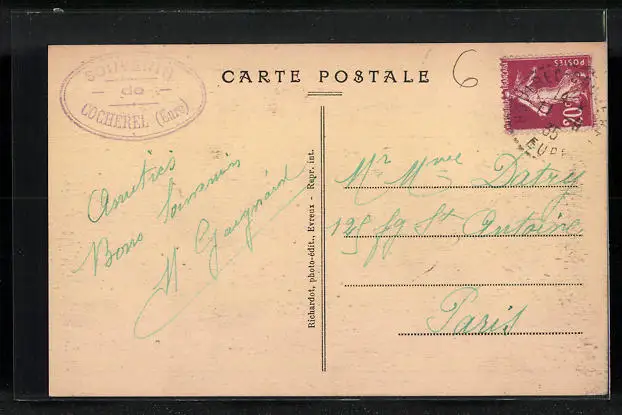 SOUVENIR
de
COCHEREL (Eure)
CARTE POSTALE
6
POSTES
20c
35
EURE
Amitiés
Bons Souvenirs
Richardot, photo-édit., Evreux - Repr. int.
Mr Mme Datry
125 fg St Antoine
Paris